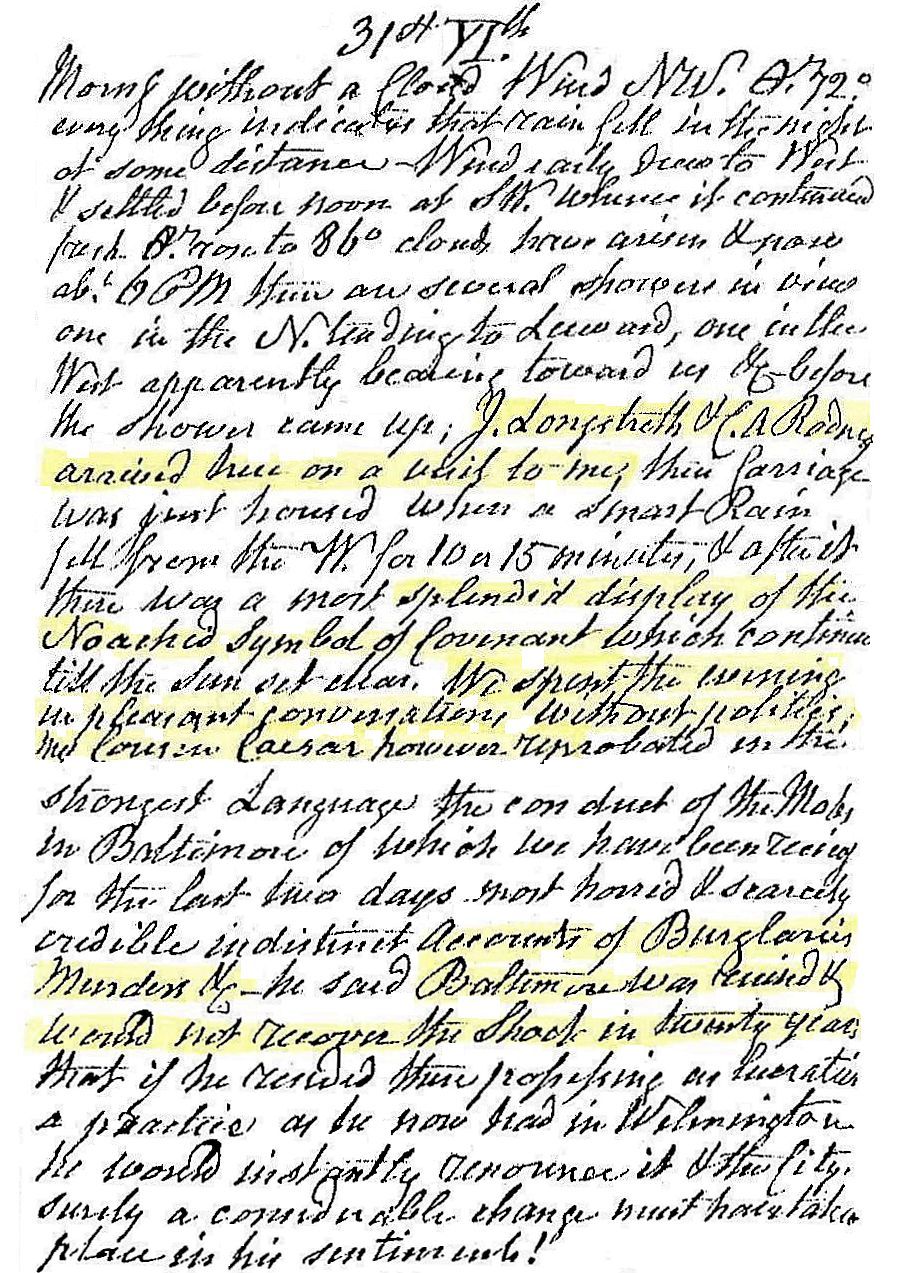 31st VIth
Morng without a Cloud Wind NW. Θr. 72.°
every thing indicates that rain fell in the night
at some distance - Wind early hove to West
& settled before noon at SW. whence it continued
fresh Θr. rose to 86° clouds have arisen & now
abt. 6 PM there are several showers in view
one in the N. tending to Leeward, one in the
West apparently bearing toward us &c - before
the shower came up, J. Longstreth & C. A Rodney
arrived here on a visit to me, their Carriage
was just housed when a smart Rain
fell from the W. for 10 or 15 minutes, & after it
there was a most splendid display of the
Noachid Symbol of Covenant which continu
till the Sun set clear. We spent the evening
in pleasant conversation, without politics,
my Cousin Caesar however reprobated in the
strongest Language the conduct of the Mobs
in Baltimore of which we have been recing
for the last two days most horrid & scarcely
credible indistinct Accounts of Burglaries
Murders &c - he said Baltimore was ruined &
would not recover the Shock in twenty years
that if he resided there possessing as lucrative
a practice as he now had in Wilmington
he would instantly renounce it & the City.
surely a considerable change must have taken
place in his sentiments!